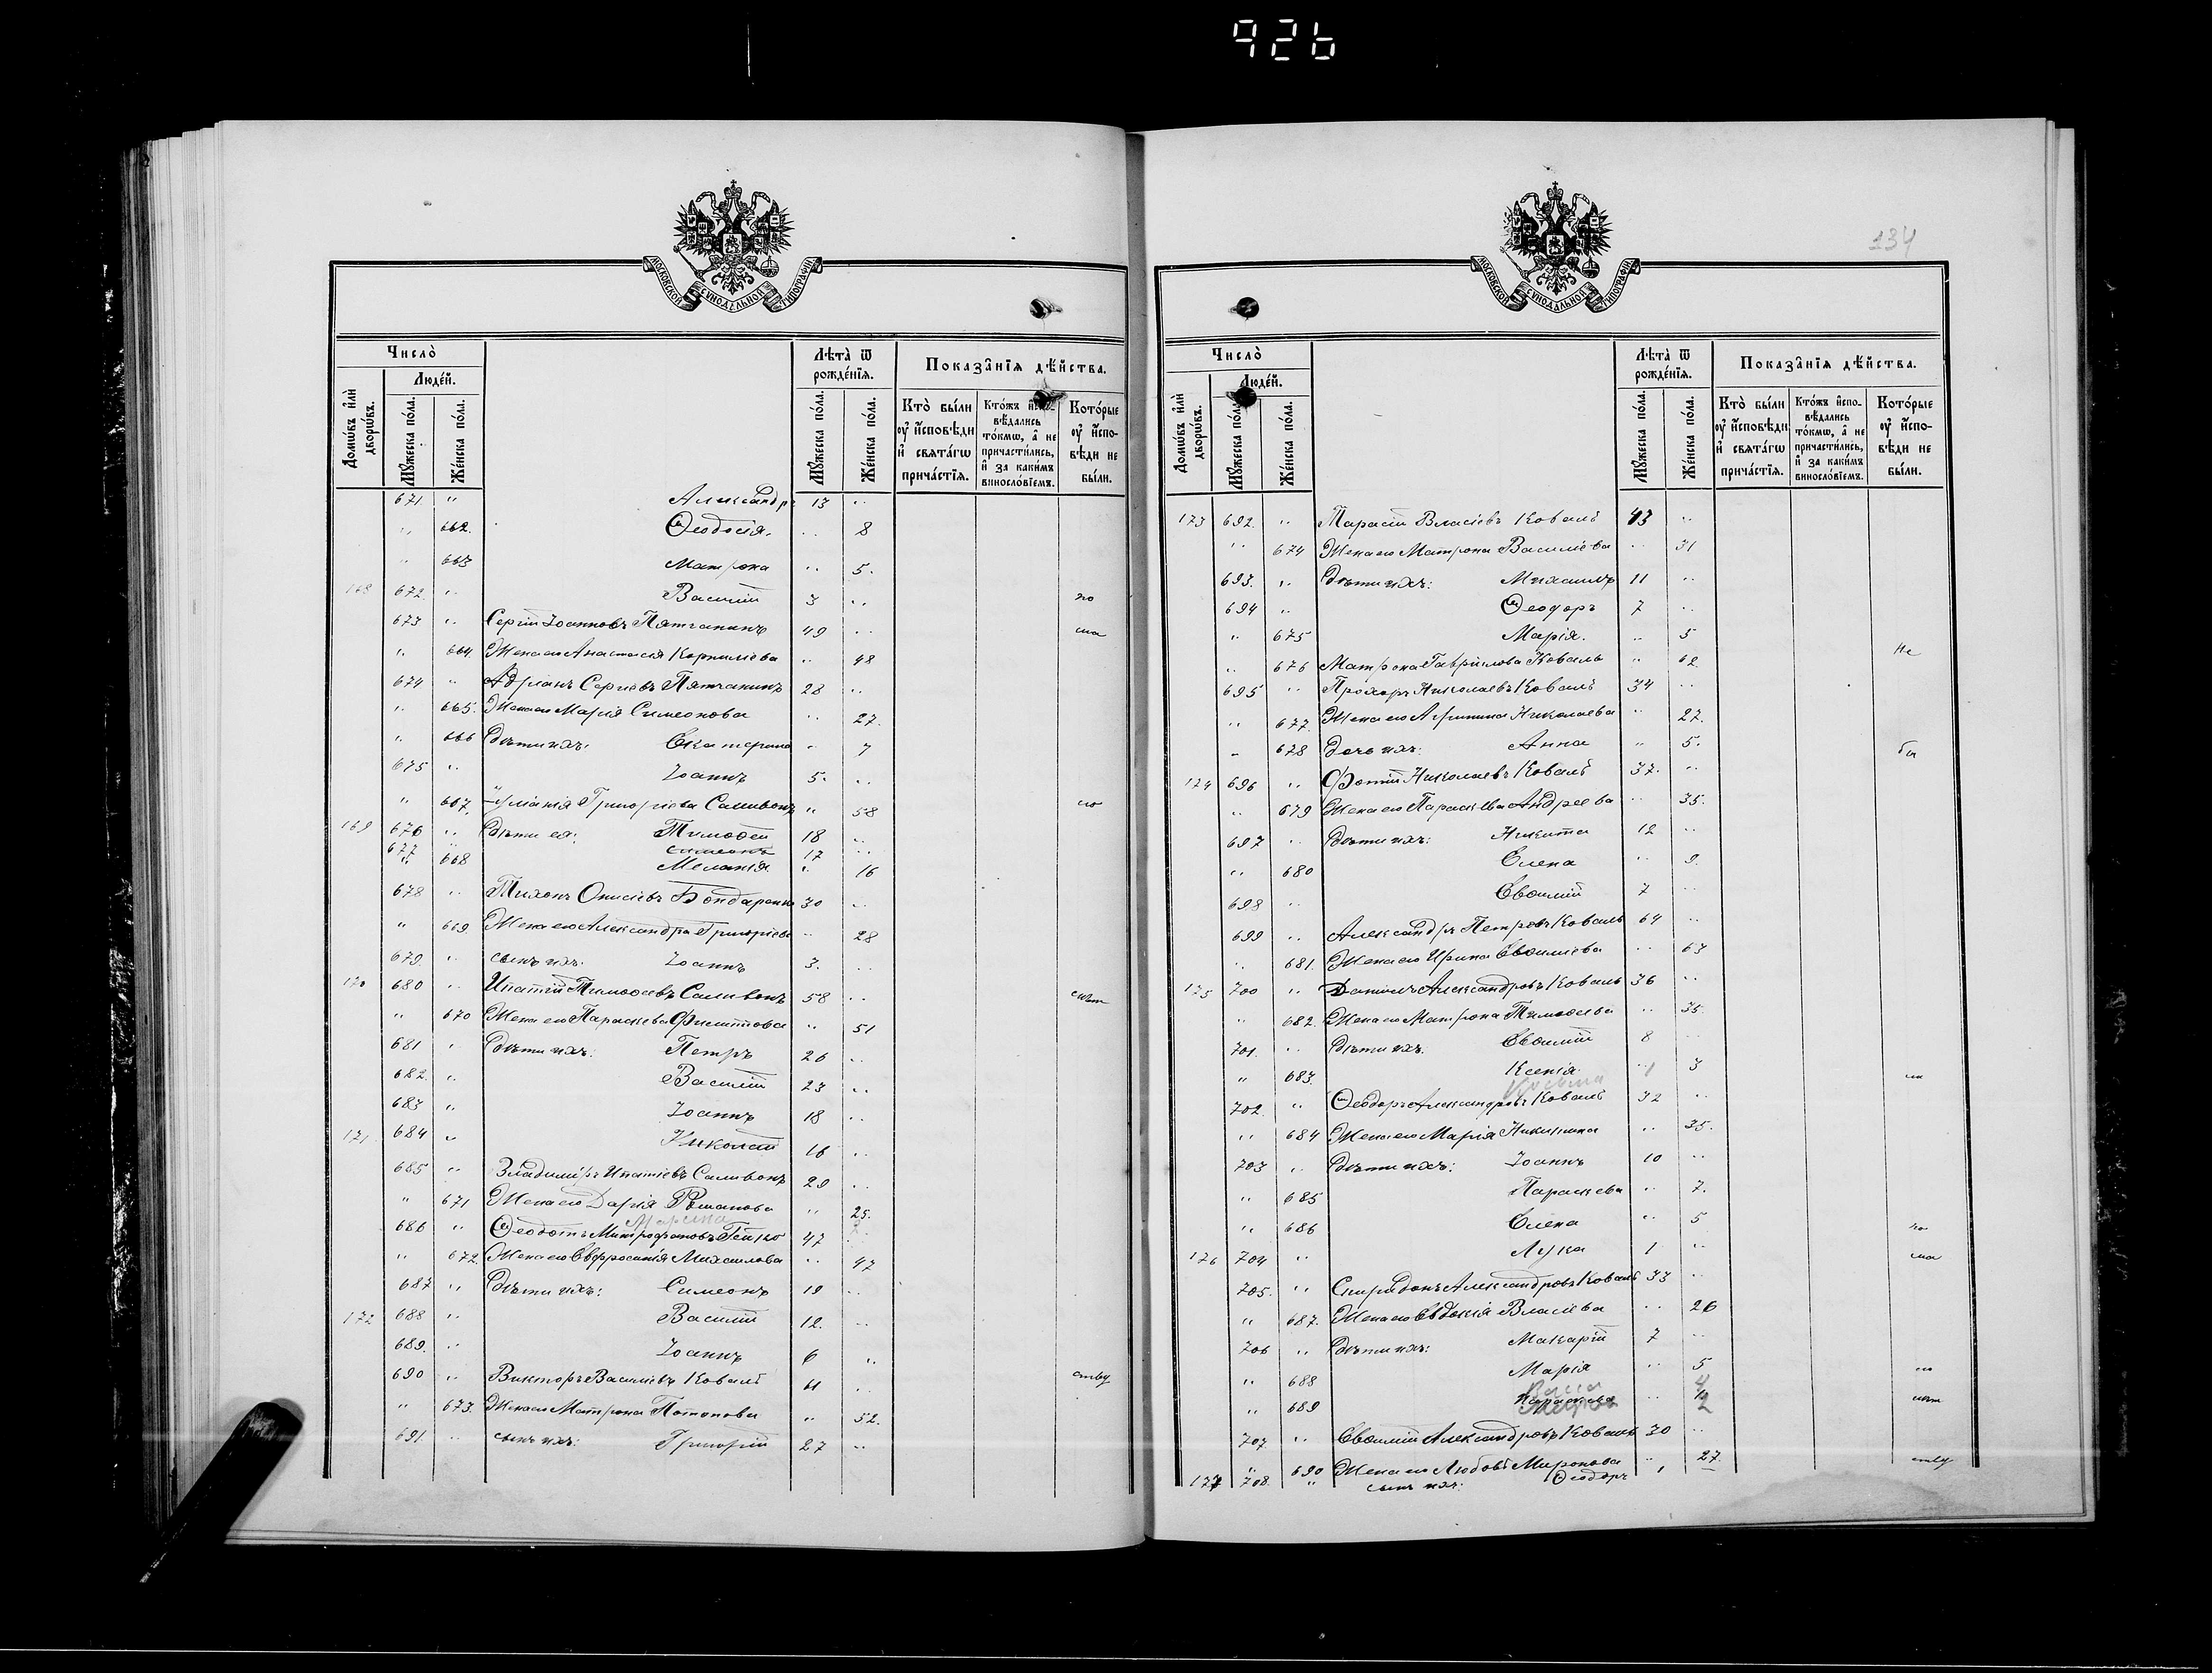 926
МОСКОВСКОЙ СУНОДАЛЬНОЙ ТИПОГРАФІИ
Число̀
Людéй.
Лѣта̀ ѿ рождéнїѧ.
Показа̑нїѧ дѣ́йства.
Домѡ́въ и҆лѝ дворѡ́въ.
Мꙋ́жеска по́ла.
Же́нска по́ла.
Мꙋ́жеска по́ла.
Же́нска по́ла.
Кто̀ бы́ли ᲂу҆ и҆́сповѣди и҆ свѧта́гѡ прича́стїѧ.
Кто́жъ и҆спо- вѣ́дались то́кмѡ, а҆ не причасти́лись, и҆ за каки́мъ винослóвїемъ.
Кото́рые ᲂу҆ и҆́спо- вѣди не бы́ли.
671. " Александръ 13 "
" 662. Ѳеодосія. " 8
" 663 Матрона " 5.
168 672. " Василій 3 " по
673 " Сергій Іоанновъ Пятчанинъ 49 "
" 664. Жена его Анастасія Корнилієва " 48
674 " Адріанъ Сергіевъ Пятчанинъ 28 "
" 665. Жена его Марія Симеонова " 27.
" 666 Дѣти ихъ: Екатерина " 7
675 " Іоаннъ 5. "
" 667. Григоріева Саливонъ " 58
169 676 " Дѣти ея: Тимоѳей 18 "
677 " Симеонъ 17 "
" 668 Меланія " 16
678 " Тихонъ Онисіевъ Бондаренко 30 "
" 669. Жена его Александра Григоріева " 28
679. " сынъ ихъ: Іоаннъ 3. "
170 680 " Ипатій Тимоѳеевъ Саливонъ 58 "
" 670 Жена его Параскева Филиппова " 51
681 " Дѣти ихъ: Петръ 26 "
682. " Василій 23 "
683 " Іоаннъ 18 "
171 684 " Николай 16 "
685 " Владиміръ Ипатіевъ Саливонъ 29 "
" 671 Жена его Дарія Романова " 25.
Марина
686 " Ѳеодотъ Митрофановъ Гейко 47
" 672. Жена его Евфросинія Михаилова " 47
687 " Дѣти ихъ: Симеонъ 19 "
172 688 " Василій 12. "
689. " Іоаннъ 6 "
690 " Викторъ Василіевъ Коваль 61 "
" 673. Жена его Матрона Потапова " 52.
691. " сынъ ихъ: Григорій 27 "
134
МОСКОВСКОЙ СУНОДАЛЬНОЙ ТИПОГРАФІИ
Число̀
Людéй.
Лѣта̀ ѿ рождéнїѧ.
Показа̑нїѧ дѣ́йства.
Домѡ́въ и҆лѝ дворѡ́въ.
Мꙋ́жеска по́ла.
Же́нска по́ла.
Мꙋ́жеска по́ла.
Же́нска по́ла.
Кто̀ бы́ли ᲂу҆ и҆́сповѣди и҆ свѧта́гѡ прича́стїѧ.
Кто́жъ и҆спо- вѣ́дались то́кмѡ, а҆ не причасти́лись, и҆ за каки́мъ винослóвїемъ.
Кото́рые ᲂу҆ и҆́спо- вѣди не бы́ли.
173 692. " Тарасій Власіевъ Коваль 43 "
" 674 Жена его Матрона Василіева " 31
693. " Дѣти ихъ: Михаилъ 11 "
694 " Ѳеодоръ 7 "
" 675 Марія. " 5
" 676 Матрона Гавріилова Коваль " 62 Не
695 " Прохоръ Николаевъ Коваль 34 "
" 677. Жена его Агрипина Николаева " 27.
" 678 Дочь ихъ: Анна " 5. бы
174 696 " Фотій Николаевъ Коваль 37. "
" 679 Жена его Параскева Андреева " 35.
697 " Дѣти ихъ: Никита 12 "
" 680 Елена " 9.
698 " Евѳимій 7 "
699 " Александръ Петровъ Коваль 64 "
" 681. Жена его Ирина Евѳиміева " 63
175 700 " Даніилъ Александровъ Коваль 36 "
" 682. Жена его Матрона Тимоѳеева " 35.
701. " Дѣти ихъ. Евѳимій 8 "
" 683. Ксенія " 3 ли
702. " Ѳеодоръ Александровъ Коваль 32 "
" 684 Жена его Марія Никитина " 35.
703 " Дѣти ихъ: Іоаннъ 10 "
" 685 Параскева " 7.
" 686 Елена " 5 по
176 704 " Лука 1 "
705. " Спиридонъ Александровъ Коваль 33 "
" 687. Жена его Евдокія Власіева " 26
706 " Дѣти ихъ: Макарій 7 "
" 688 Марія " 5
" 689 "
707 " Евѳимій Александровъ Коваль 30 "
" 690 Жена его Любовь Миронова " 27.
177 708. " сынъ ихъ: Ѳеодоръ 1